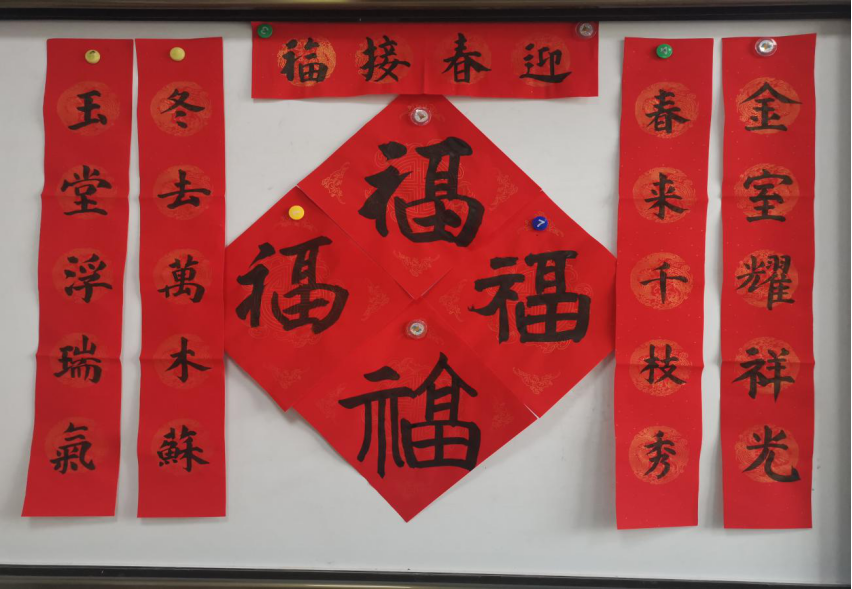 迎春接福
金室耀祥光
春来千枝秀
福
福
福
福
冬去萬木蘇
玉堂浮瑞氣